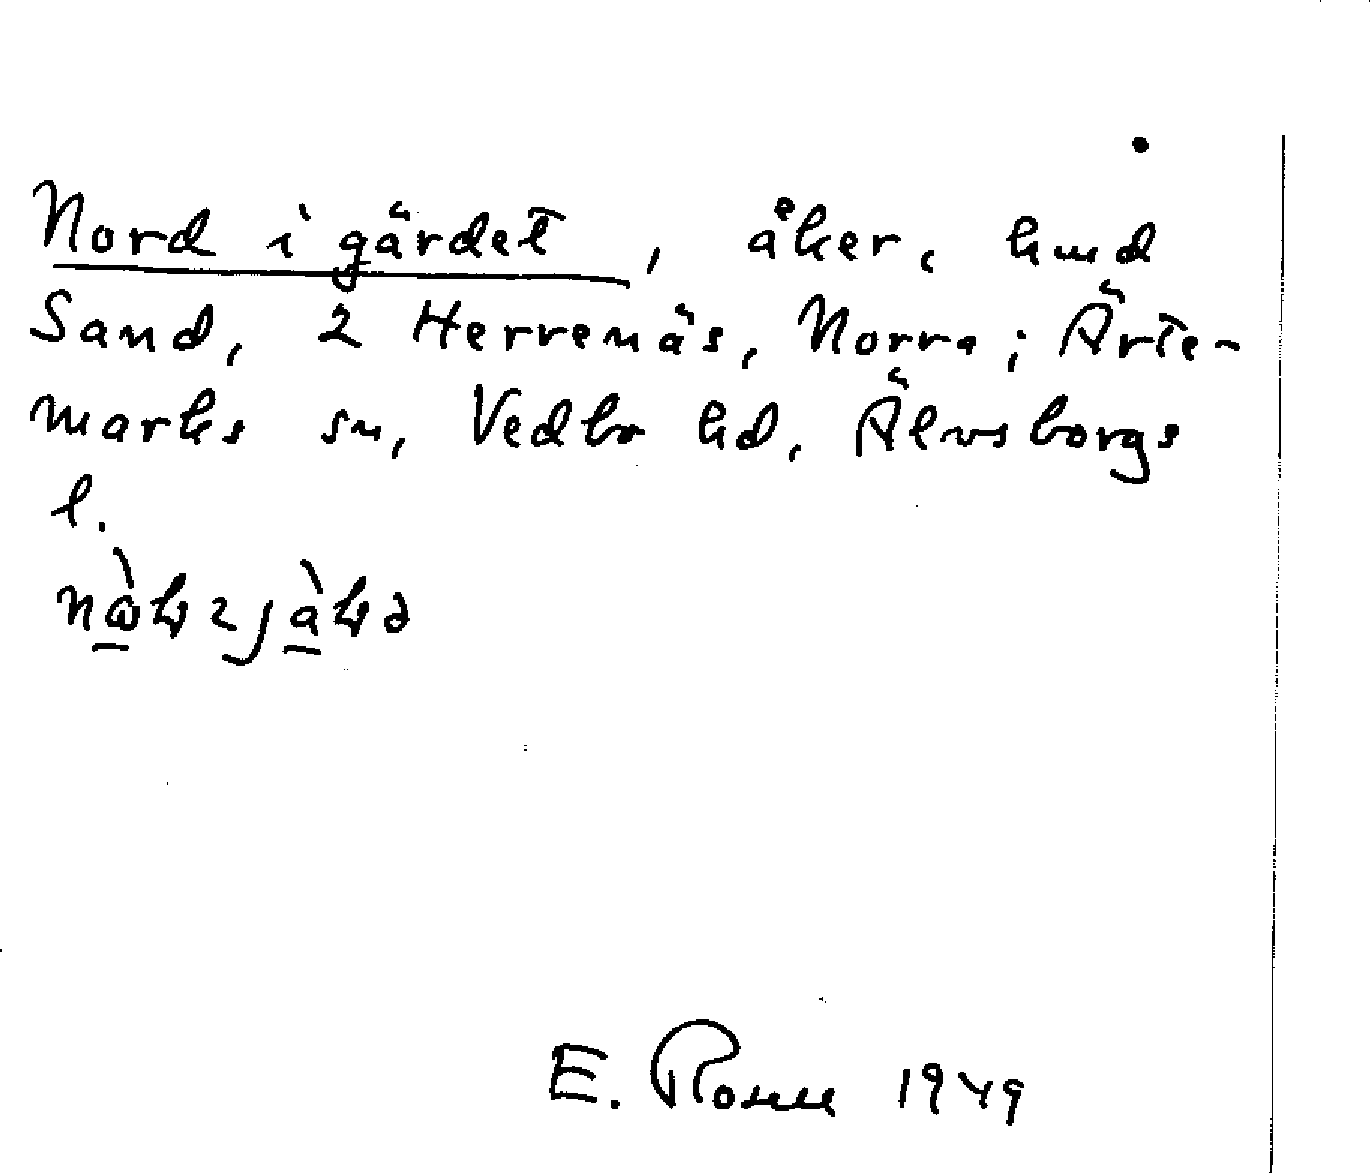 Nord i gärdet, åker, hmd
Sand, 2 Herrenäs, Norra; Ärte-
marks sn, Vedbo hd, Älvsborgs
l.
E. 1949